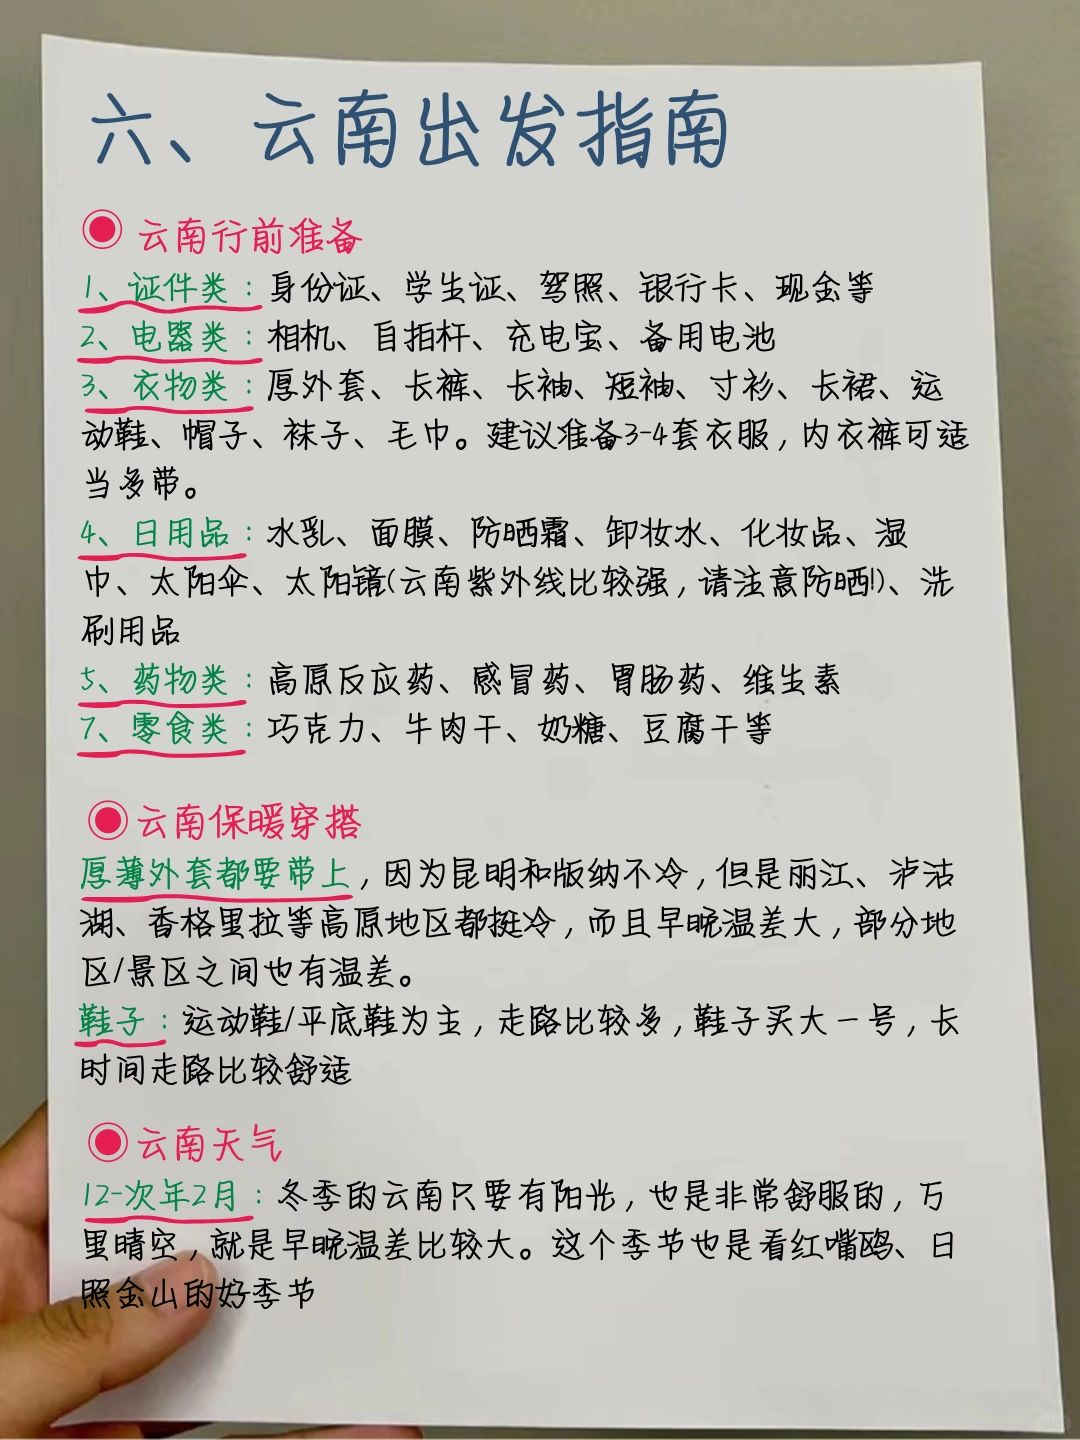 六、云南出发指南
云南行前准备
1、证件类：身份证、学生证、驾照、银行卡、现金等
2、电器类：相机、自拍杆、充电宝、备用电池
3、衣物类：厚外套、长裤、长袖、短袖、寸衫、长裙、运
动鞋、帽子、袜子、毛巾。建议准备3-4套衣服，内衣裤可适
当多带。
4、日用品：水乳、面膜、防晒霜、卸妆水、化妆品、湿
巾、太阳伞、太阳镜(云南紫外线比较强，请注意防晒!)、洗
刷用品
5、药物类：高原反应药、感冒药、胃肠药、维生素
7、零食类：巧克力、牛肉干、奶糖、豆腐干等
云南保暖穿搭
厚薄外套都要带上，因为昆明和版纳不冷，但是丽江、泸沽
湖、香格里拉等高原地区都挺冷，而且早晚温差大，部分地
区/景区之间也有温差。
鞋子：运动鞋/平底鞋为主，走路比较多，鞋子买大一号，长
时间走路比较舒适
云南天气
12-次年2月：冬季的云南只要有阳光，也是非常舒服的，万
里晴空，就是早晚温差比较大。这个季节也是看红嘴鸥、日
照金山的好季节